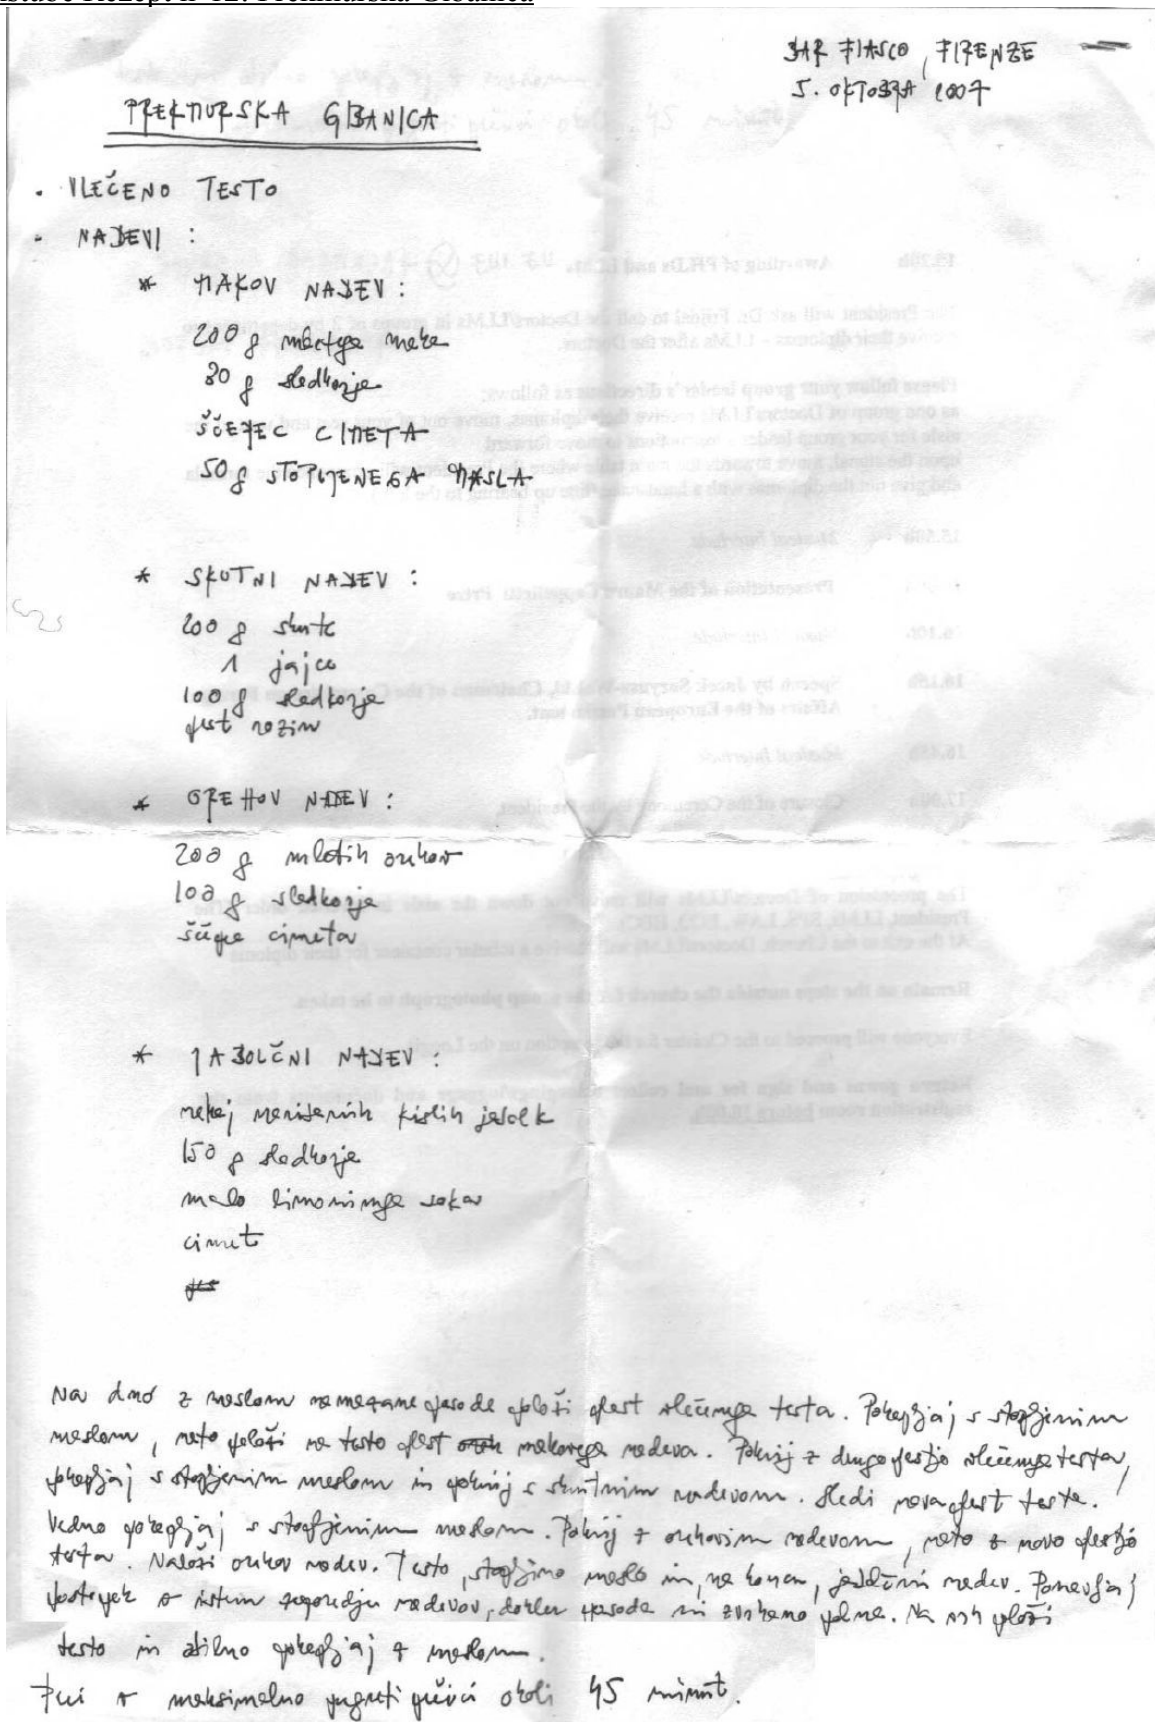 BAR FIASCO, FIRENZE
5. OKTOBRA 2007
PREKMURSKA GIBANICA
• VLEČENO TESTO
• NADEVI :
* MAKOV NADEV :
200 g mletega maka
80 g sladkorja
ŠČEPEC CIMETA
50 g STOPLJENEGA MASLA
* SKUTNI NADEV :
200 g skute
1 jajce
100 g sladkorja
pest rozin
* OREHOV NADEV :
200 g mletih orehov
100 g sladkorja
ščepec cimeta
* JABOLČNI NADEV :
nekaj naribanih kislih jabolk
150 g sladkorja
malo limoninega soka
cimet
Na dno z maslom namazane posode položi plast vlečenega testa. Pokapljaj s stopljenim
maslom, nato položi na testo plast makovega nadeva. Pokrij z drugo plastjo vlečenega testa,
pokapljaj s stopljenim maslom in pokrij s skutnim nadevom. Sledi nova plast testa.
Vedno pokapljaj s stopljenim maslom. Pokrij z orehovim nadevom, nato z novo plastjo
testa. Naloži orehov nadev. Testo, stopljeno maslo in, na koncu, jabolčni nadev. Ponavljaj
postopek v istem zaporedju nadevov, dokler posoda ni zvrhano polna. Na vrh položi
testo in obilno pokapljaj z maslom.
Peci v maksimalno pogreti pečici okoli 45 minut.